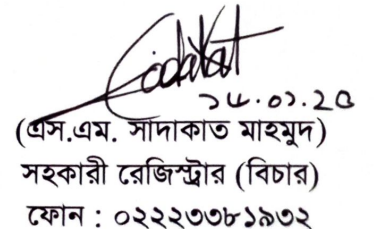 ১৮.০১.২৫
(এস.এম. সাদাকাত মাহমুদ)
সহকারী রেজিস্ট্রার (বিচার)
ফোন : ০২২২৩৩৮১৯৩২